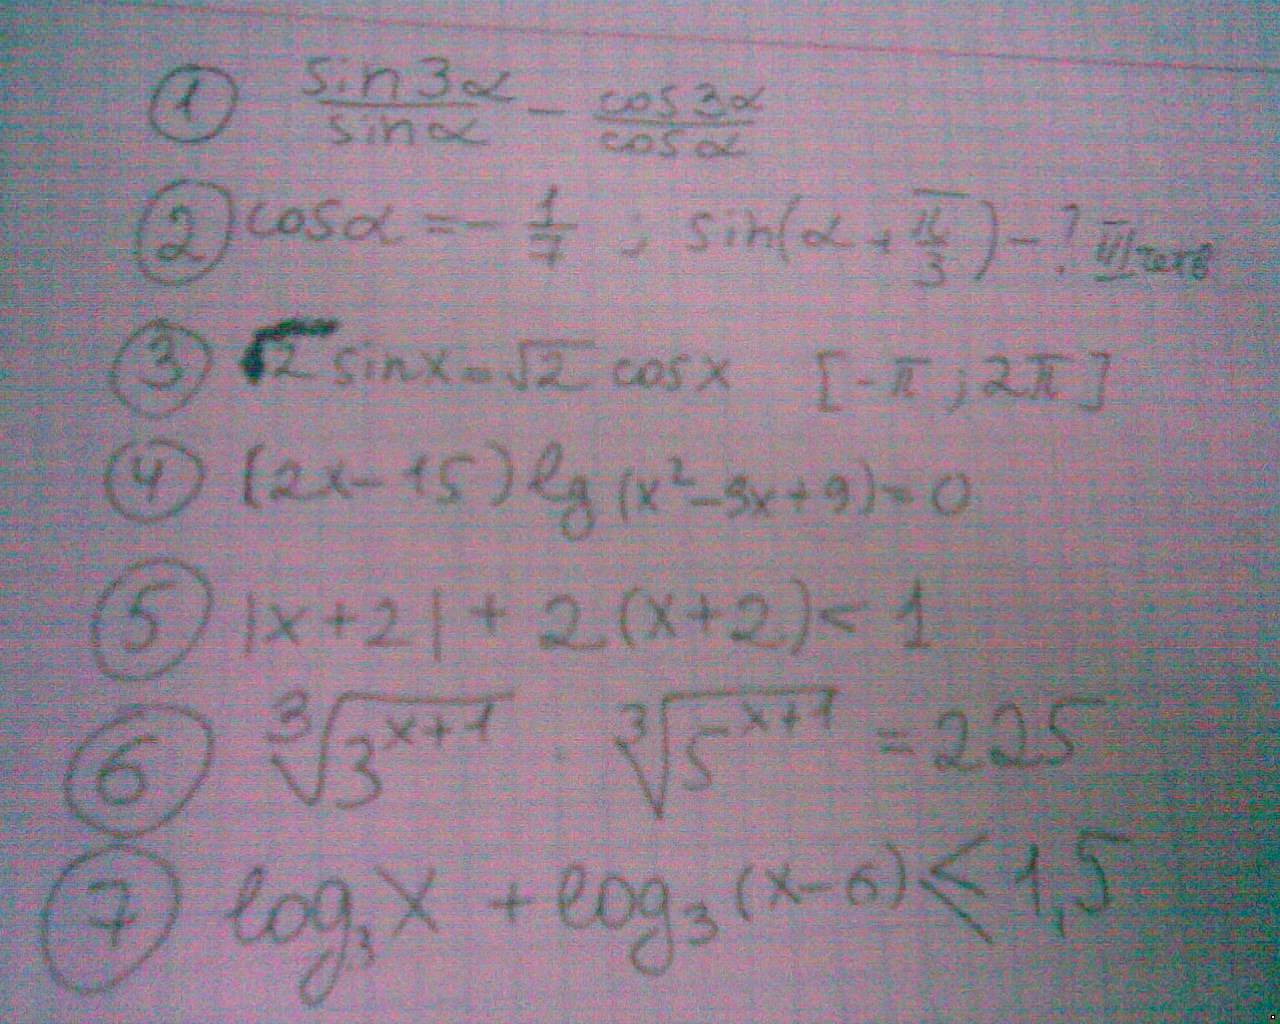 1 sin3α/sinα - cos3α/cosα
2 cosα = - 1/7 ; sin(α + π/3) - ? III четв
3 √2 sinx = √2 cosx [-π ; 2π]
4 (2x - 15) lg (x² - 9x + 9) = 0
5 |x + 2| + 2 (x + 2) < 1
6 ∛3^(x+1) · ∛5^(x+1) = 225
7 log₃ x + log₃ (x - 6) < 1,5